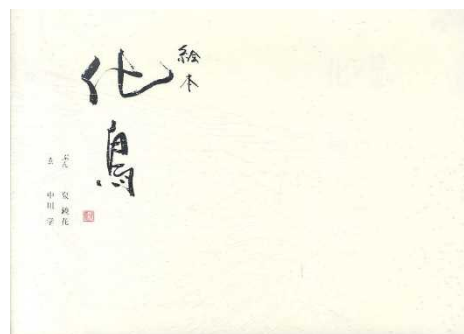 絵本
化鳥
ぶん　泉鏡花
え　中川学